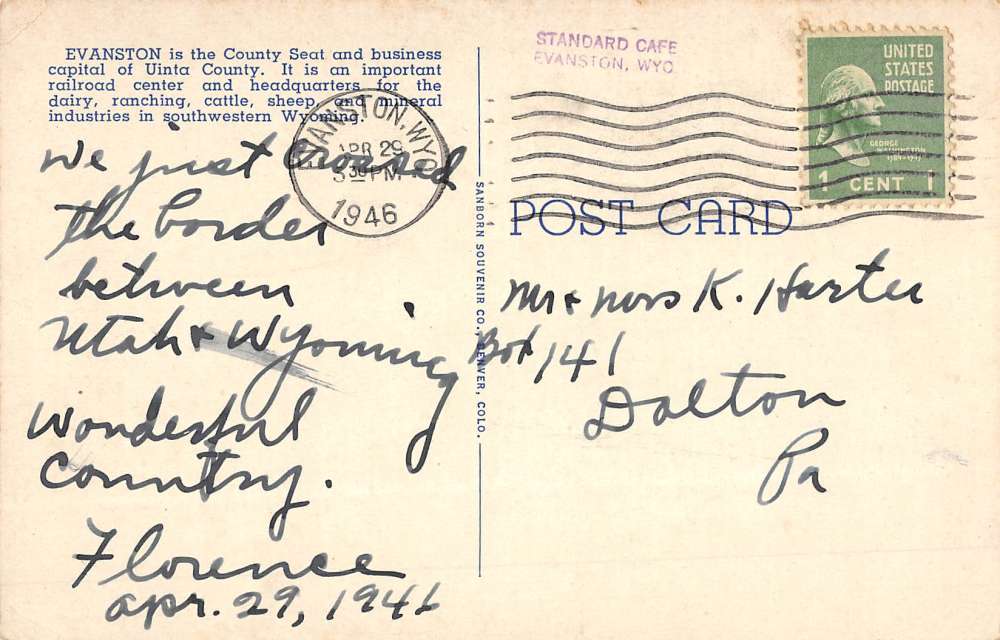 EVANSTON is the County Seat and business
capital of Uinta County. It is an important
railroad center and headquarters for the
dairy, ranching, cattle, sheep, and mineral
industries in southwestern Wyoming.
We just crossed
the border
between
Utah & Wyoming
Wonderful
Country.
Florence
Apr. 29, 1946
EVANSTON, WYO.
APR 29
5 30 PM
1946
SANBORN SOUVENIR CO., DENVER, COLO.
STANDARD CAFE
EVANSTON, WYO.
UNITED
STATES
POSTAGE
GEORGE
WASHINGTON
1789-1797
1 CENT 1
POST CARD
Mr & Mrs K. Harter
Box 141
Dalton
Pa